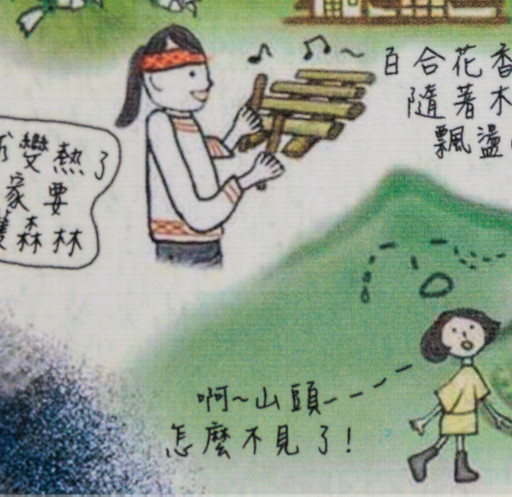 百合花香
隨著木
飄盪
變熱了
家要
森林
啊~山頭
怎麼不見了!